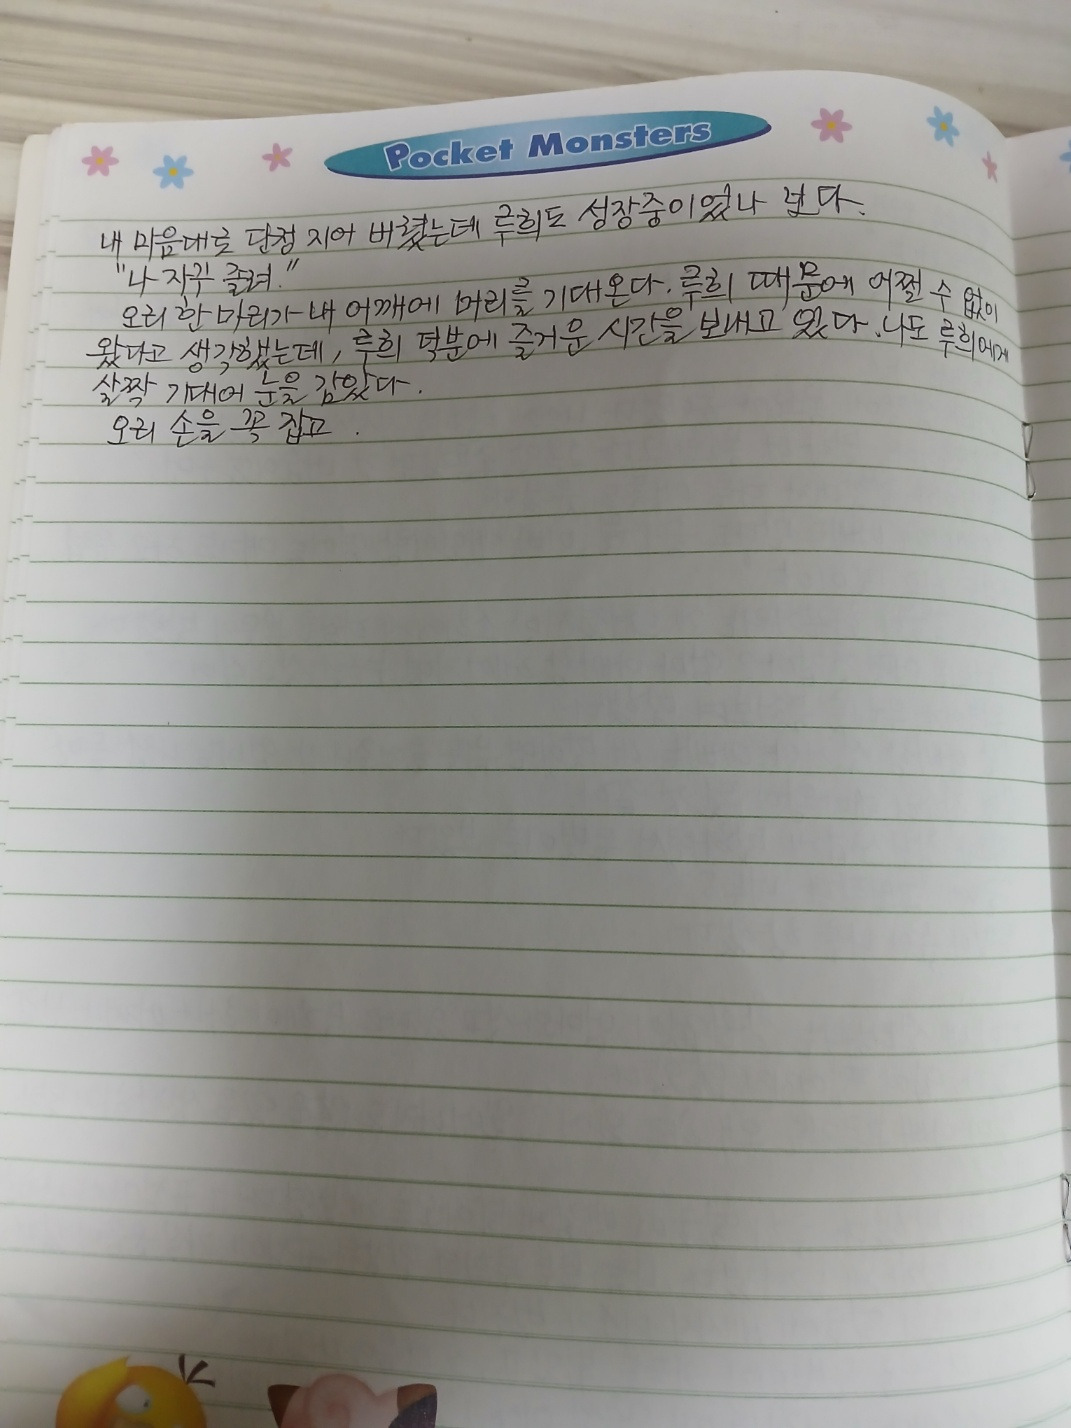 Pocket Monsters
내 마음대로 단정 지어 버렸는데 루희도 성장중이었나 보다.
"나 자꾸 졸려."
오리 한 마리가 내 어깨에 머리를 기대온다. 루희 때문에 어쩔 수 없이
왔다고 생각했는데, 루희 덕분에 즐거운 시간을 보내고 있다. 나도 루희에게
살짝 기대어 눈을 감았다.
오리 손을 꼭 잡고.